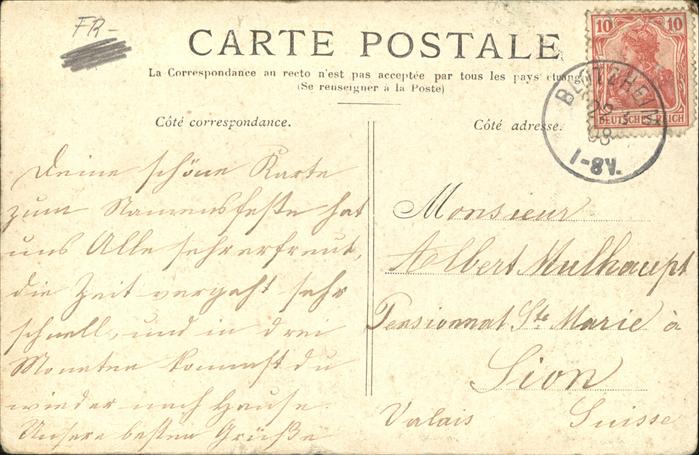 FR-
CARTE POSTALE
La Correspondance au recto n'est pas acceptée par tous les pays étrang
(Se renseigner à la Poste)
10 10
DEUTSCHES REICH
1-8V.
Côté correspondance.
Deine schöne Karte
zum Namensfeste hat
uns Alle sehr erfreut,
die Zeit vergeht sehr
schnell, und in drei
Monaten kommst du
wieder nach Hause.
Unsere besten Grüße
Côté adresse.
Monsieur
Albert Mulhaupt
Pensionnat Ste Marie à
Sion
Valais Suisse